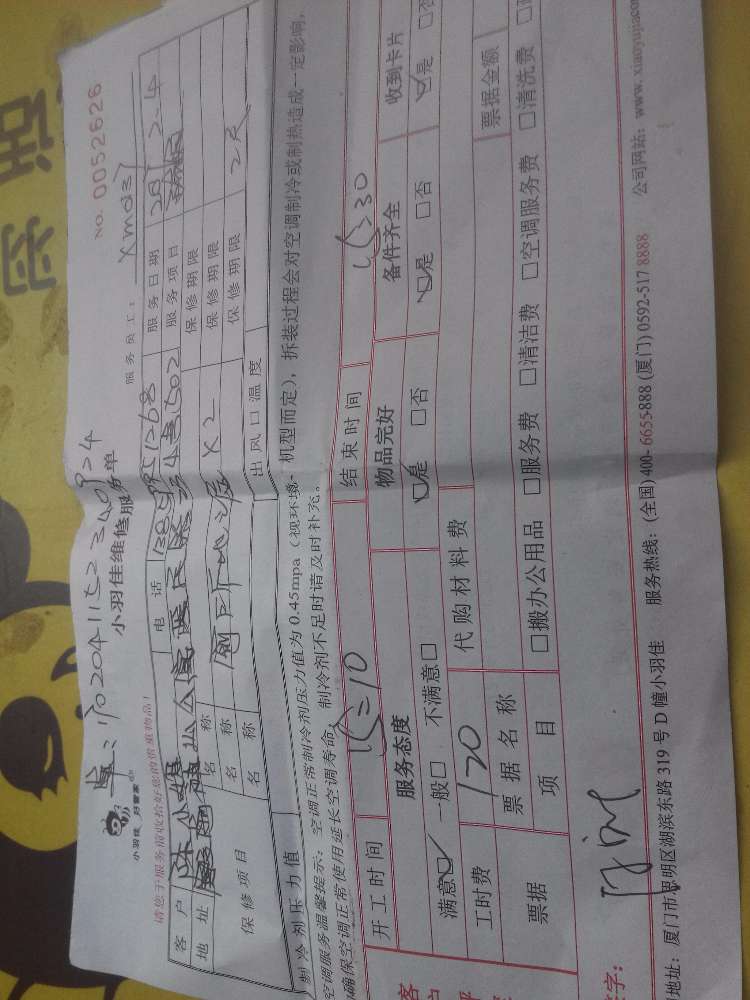 No. 0052626
单：170204115234092４
小羽佳维修服务单
小羽佳 好管家
服务员工： xmdsy
请您于服务前收拾好您的贵重物品！
客户 陈小姐 电话 服务日期 2.4
地址 服务项目
保修项目 名称 保修期限
名称 X2 保修期限
名称 保修期限 2天
制冷剂压力值 出风口温度
空调服务温馨提示：空调正常制冷剂压力值为0.45mpa（视环境、机型而定），拆装过程会对空调制冷或制热造成一定影响，
确保空调正常使用延长空调寿命，制冷剂不足时请及时补充。
开工时间 15=10 结束时间 15:30
服务态度 物品完好 备件齐全 收到卡片
满意☑ 一般□ 不满意□ ☑是 □否 ☑是 □否 ☑是 □否
工时费 120 代购材料费
票据 票据名称 票据金额
项目 □搬办公用品 □服务费 □清洁费 □空调服务费 □清洗费
字：
地址：厦门市思明区湖滨东路319号D幢小羽佳 服务热线：(全国)400-6655-888 (厦门)0592-517 8888 公司网站：www.xiaoyujia.co